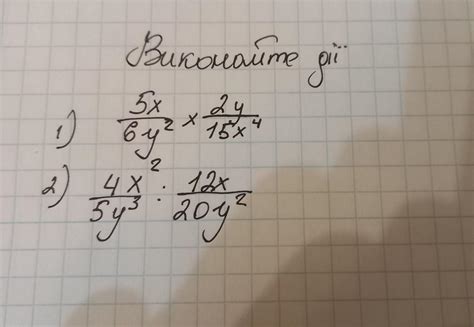 Виконайте дії
1) 5x/6y² × 2y/15x⁴
2) 4x²/5y³ : 12x/20y²